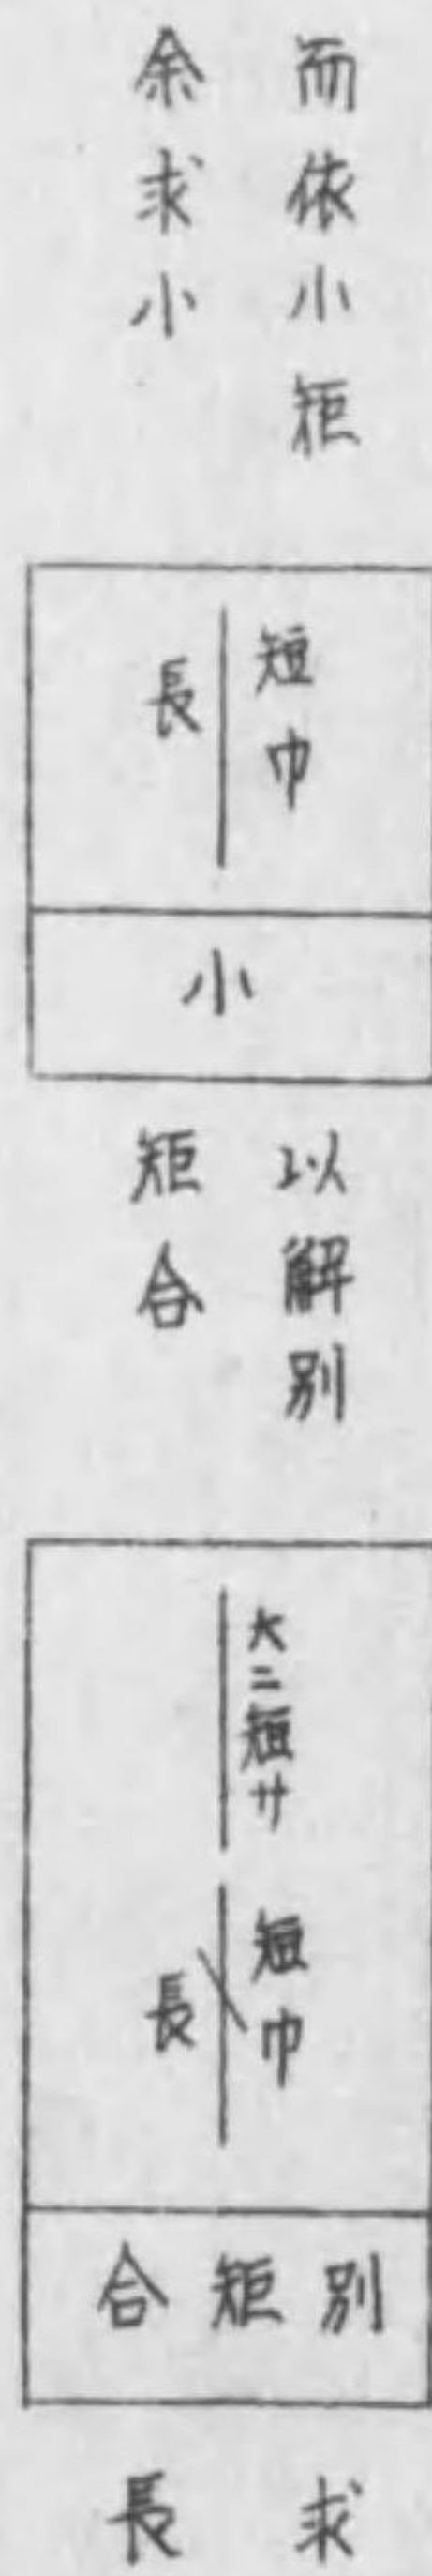 而依小矩
余求小
短巾
長
小
以解別
矩合
大二短サ
短巾
長
別矩合
求
長